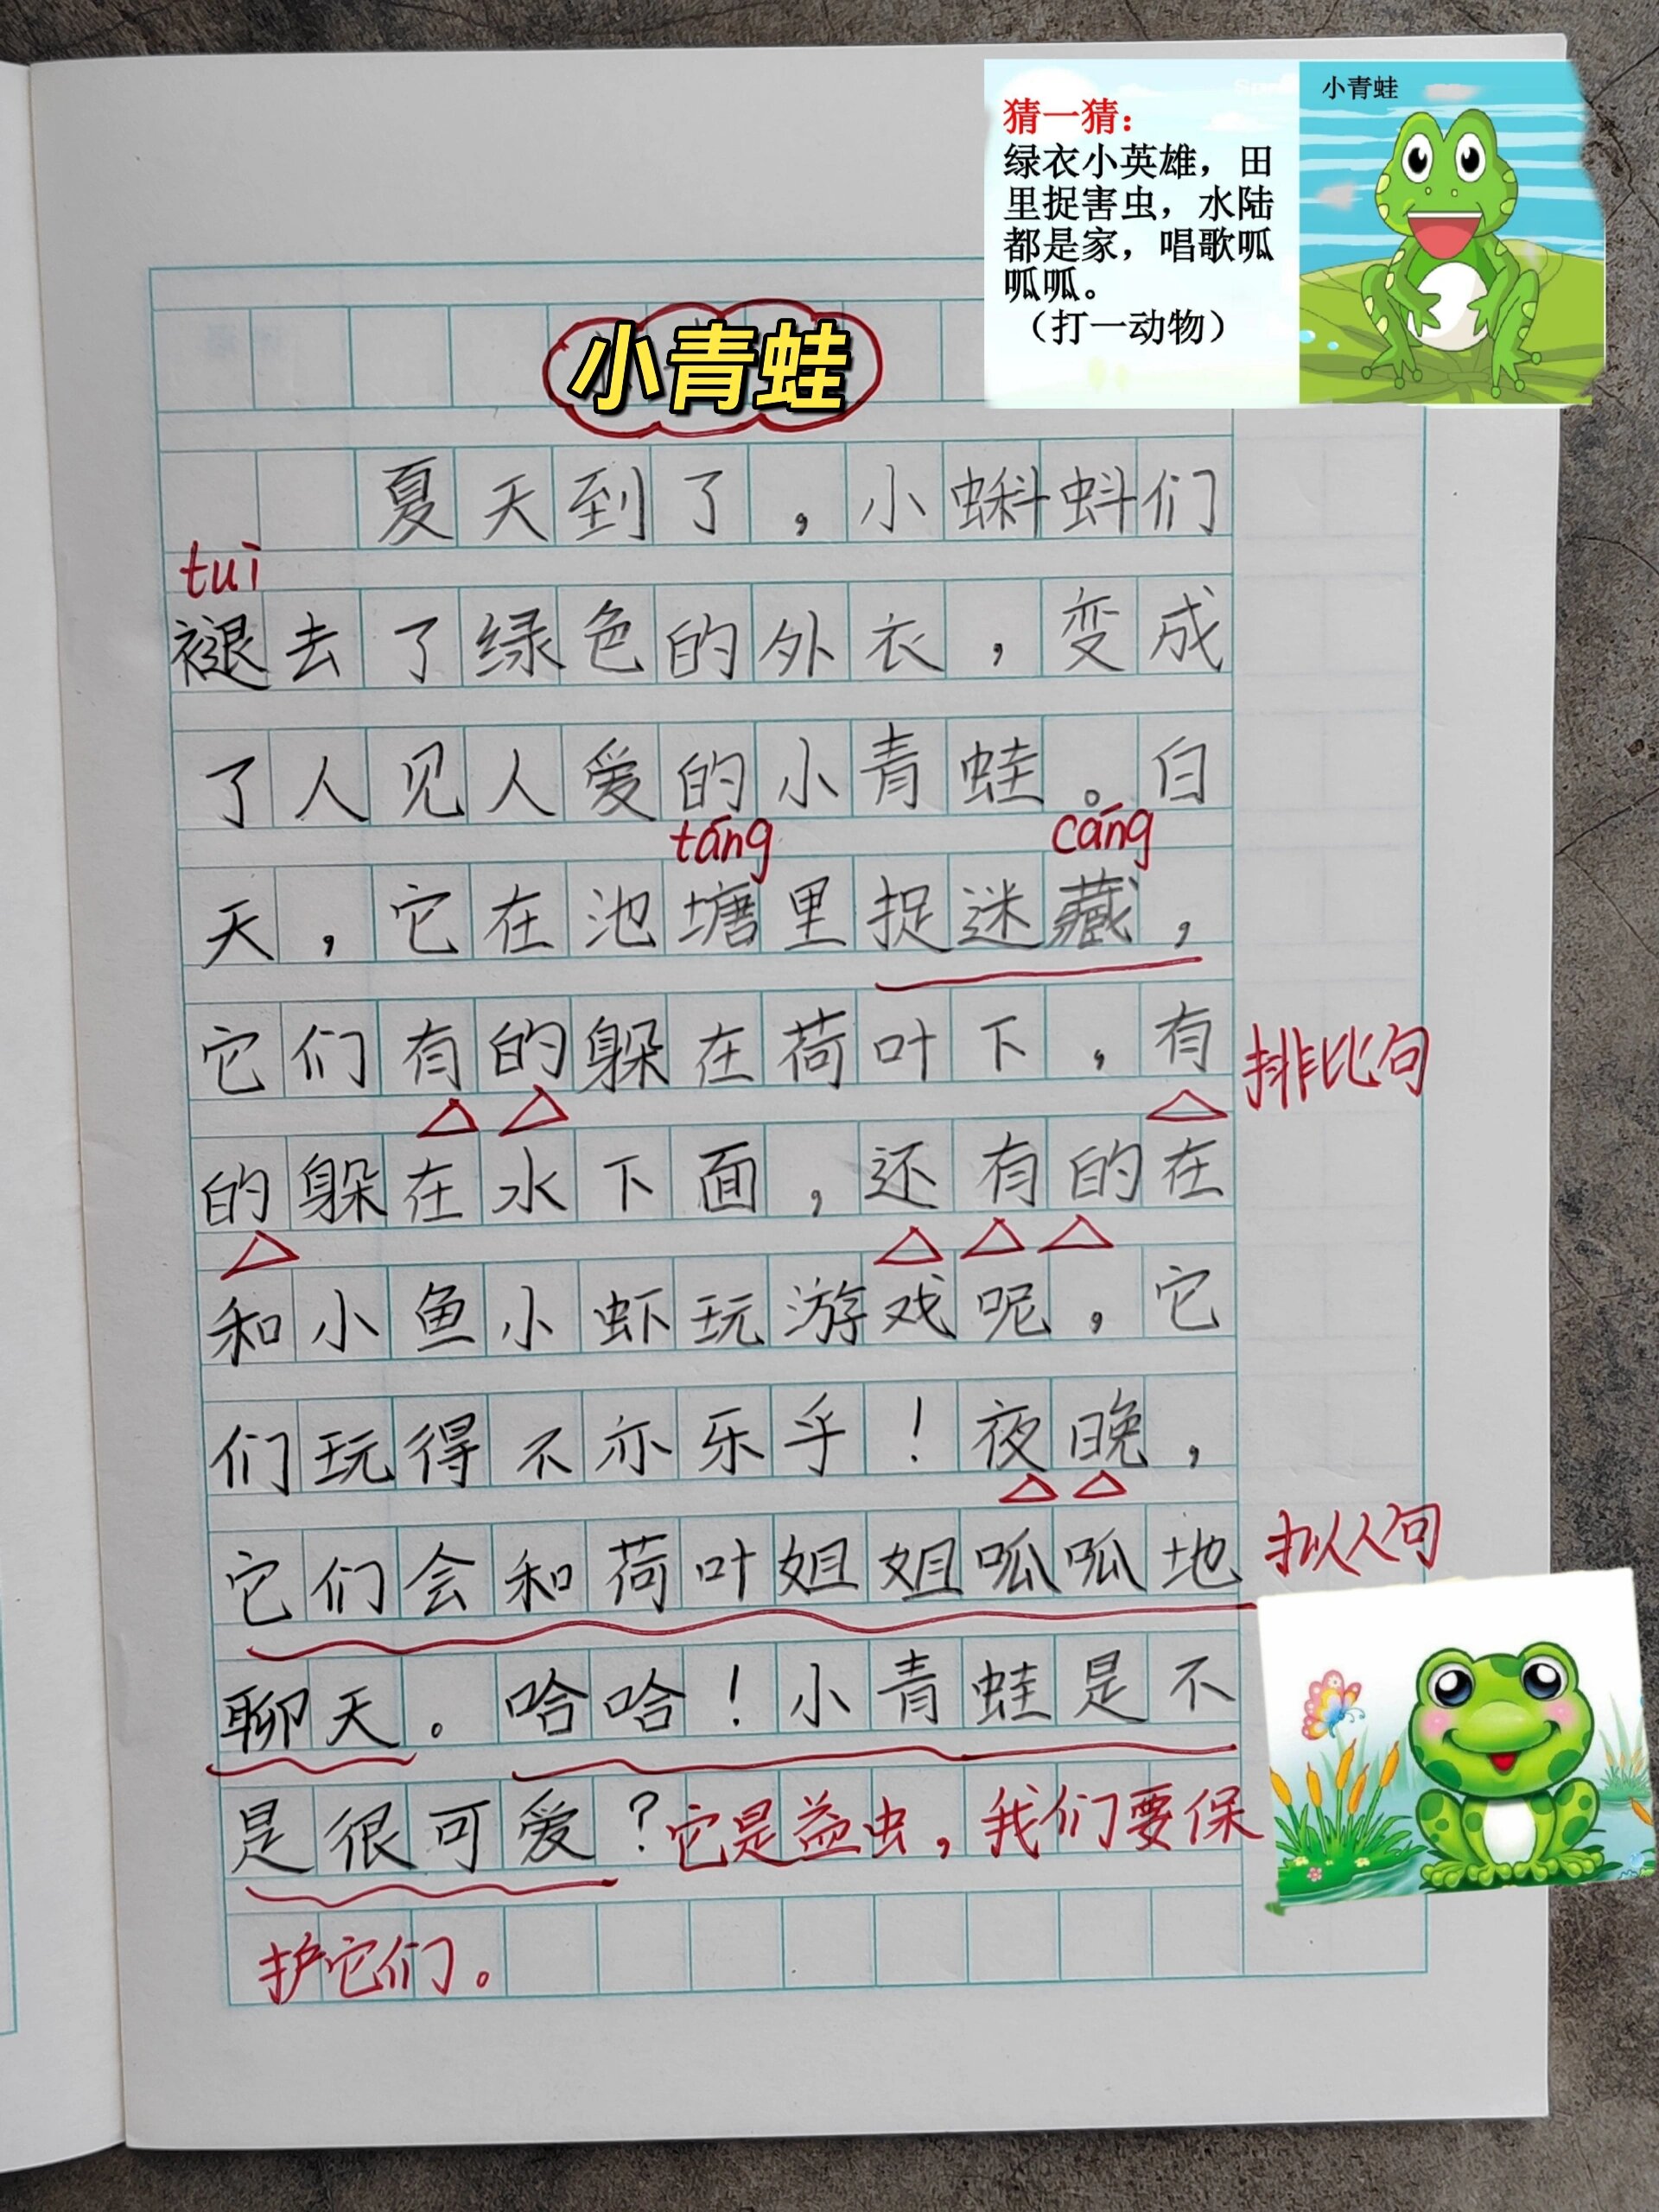 猜一猜：
绿衣小英雄，田
里捉害虫，水陆
都是家，唱歌呱
呱呱。
（打一动物）
小青蛙
小青蛙
夏天到了，小蝌蚪们
tuì
褪去了绿色的外衣，变成
了人见人爱的小青蛙。白
táng cáng
天，它在池塘里捉迷藏，
它们有的躲在荷叶下，有
排比句
的躲在水下面，还有的在
和小鱼小虾玩游戏呢，它
们玩得不亦乐乎！夜晚，
它们会和荷叶姐姐呱呱地
拟人句
聊天。哈哈！小青蛙是不
是很可爱？它是益虫，我们要保
护它们。